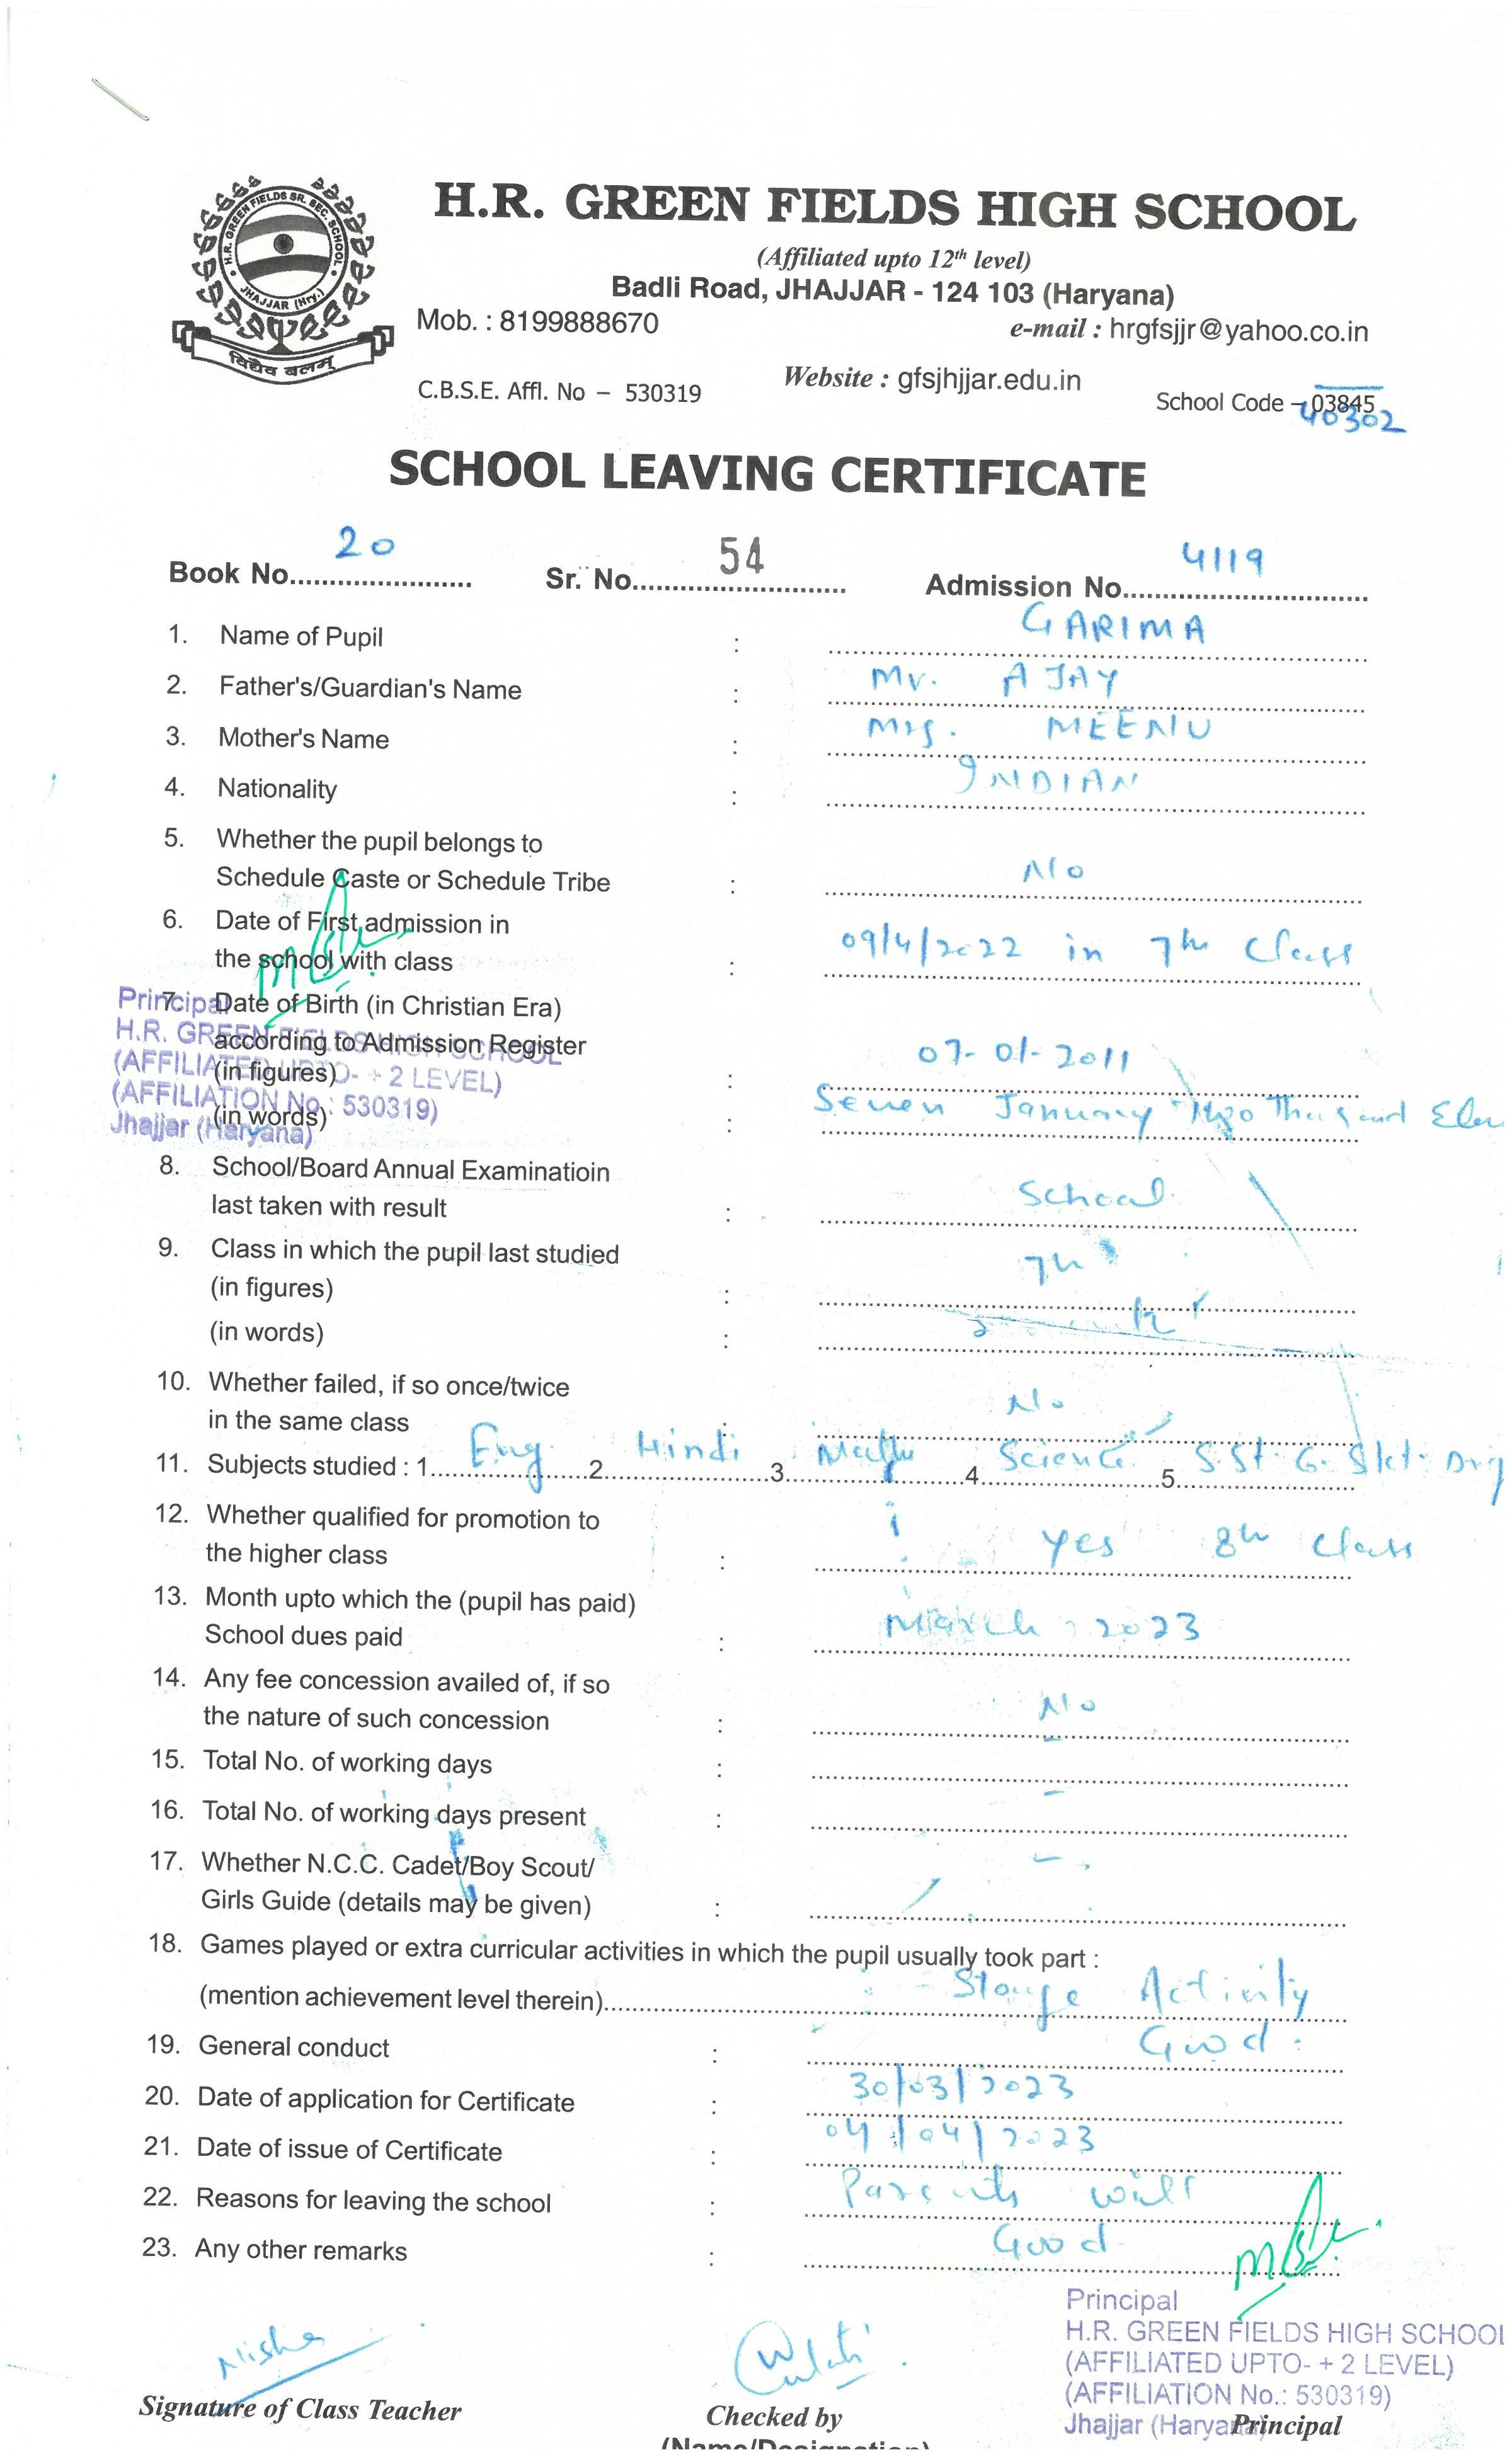 H.R. GREEN FIELDS SR. SEC. SCHOOL
JHAJJAR (Hry.)
विद्यैव बलम्
H.R. GREEN FIELDS HIGH SCHOOL
(Affiliated upto 12th level)
Badli Road, JHAJJAR - 124 103 (Haryana)
Mob. : 8199888670 e-mail : hrgfsjjr@yahoo.co.in
C.B.S.E. Affl. No – 530319 Website : gfsjhjjar.edu.in School Code – 03845
40302
SCHOOL LEAVING CERTIFICATE
Book No. 20 Sr. No. 54 Admission No. 4119
1. Name of Pupil : GARIMA
2. Father's/Guardian's Name : Mr. AJAY
3. Mother's Name : Mrs. MEENU
4. Nationality : INDIAN
5. Whether the pupil belongs to
Schedule Caste or Schedule Tribe : No
6. Date of First admission in
the school with class : 09/4/2022 in 7th Class
7. Date of Birth (in Christian Era)
according to Admission Register
(in figures) : 07-01-2011
(in words) : Seven January Two Thousand
Principal
H.R. GREEN FIELDS HIGH SCHOOL
(AFFILIATED UPTO- + 2 LEVEL)
(AFFILIATION No.: 530319)
Jhajjar (Haryana)
8. School/Board Annual Examinatioin
last taken with result : School
9. Class in which the pupil last studied
(in figures) : 7th
(in words) :
10. Whether failed, if so once/twice
in the same class : No
11. Subjects studied : 1. Eng. 2. Hindi 3. Maths 4. Science 5. S.St. G. Skt. Drg
12. Whether qualified for promotion to
the higher class : Yes 8th Class
13. Month upto which the (pupil has paid)
School dues paid : March 2023
14. Any fee concession availed of, if so
the nature of such concession : No
15. Total No. of working days : -
16. Total No. of working days present : -
17. Whether N.C.C. Cadet/Boy Scout/
Girls Guide (details may be given) : -
18. Games played or extra curricular activities in which the pupil usually took part :
(mention achievement level therein) Stage Activity
19. General conduct : Good
20. Date of application for Certificate : 30/03/2023
21. Date of issue of Certificate : 04/04/2023
22. Reasons for leaving the school : Parents will
23. Any other remarks : Good
Principal
H.R. GREEN FIELDS HIGH SCHOOL
(AFFILIATED UPTO- + 2 LEVEL)
(AFFILIATION No.: 530319)
Jhajjar (Haryana)
Nisha
Signature of Class Teacher Checked by Principal
(Name/Designation)